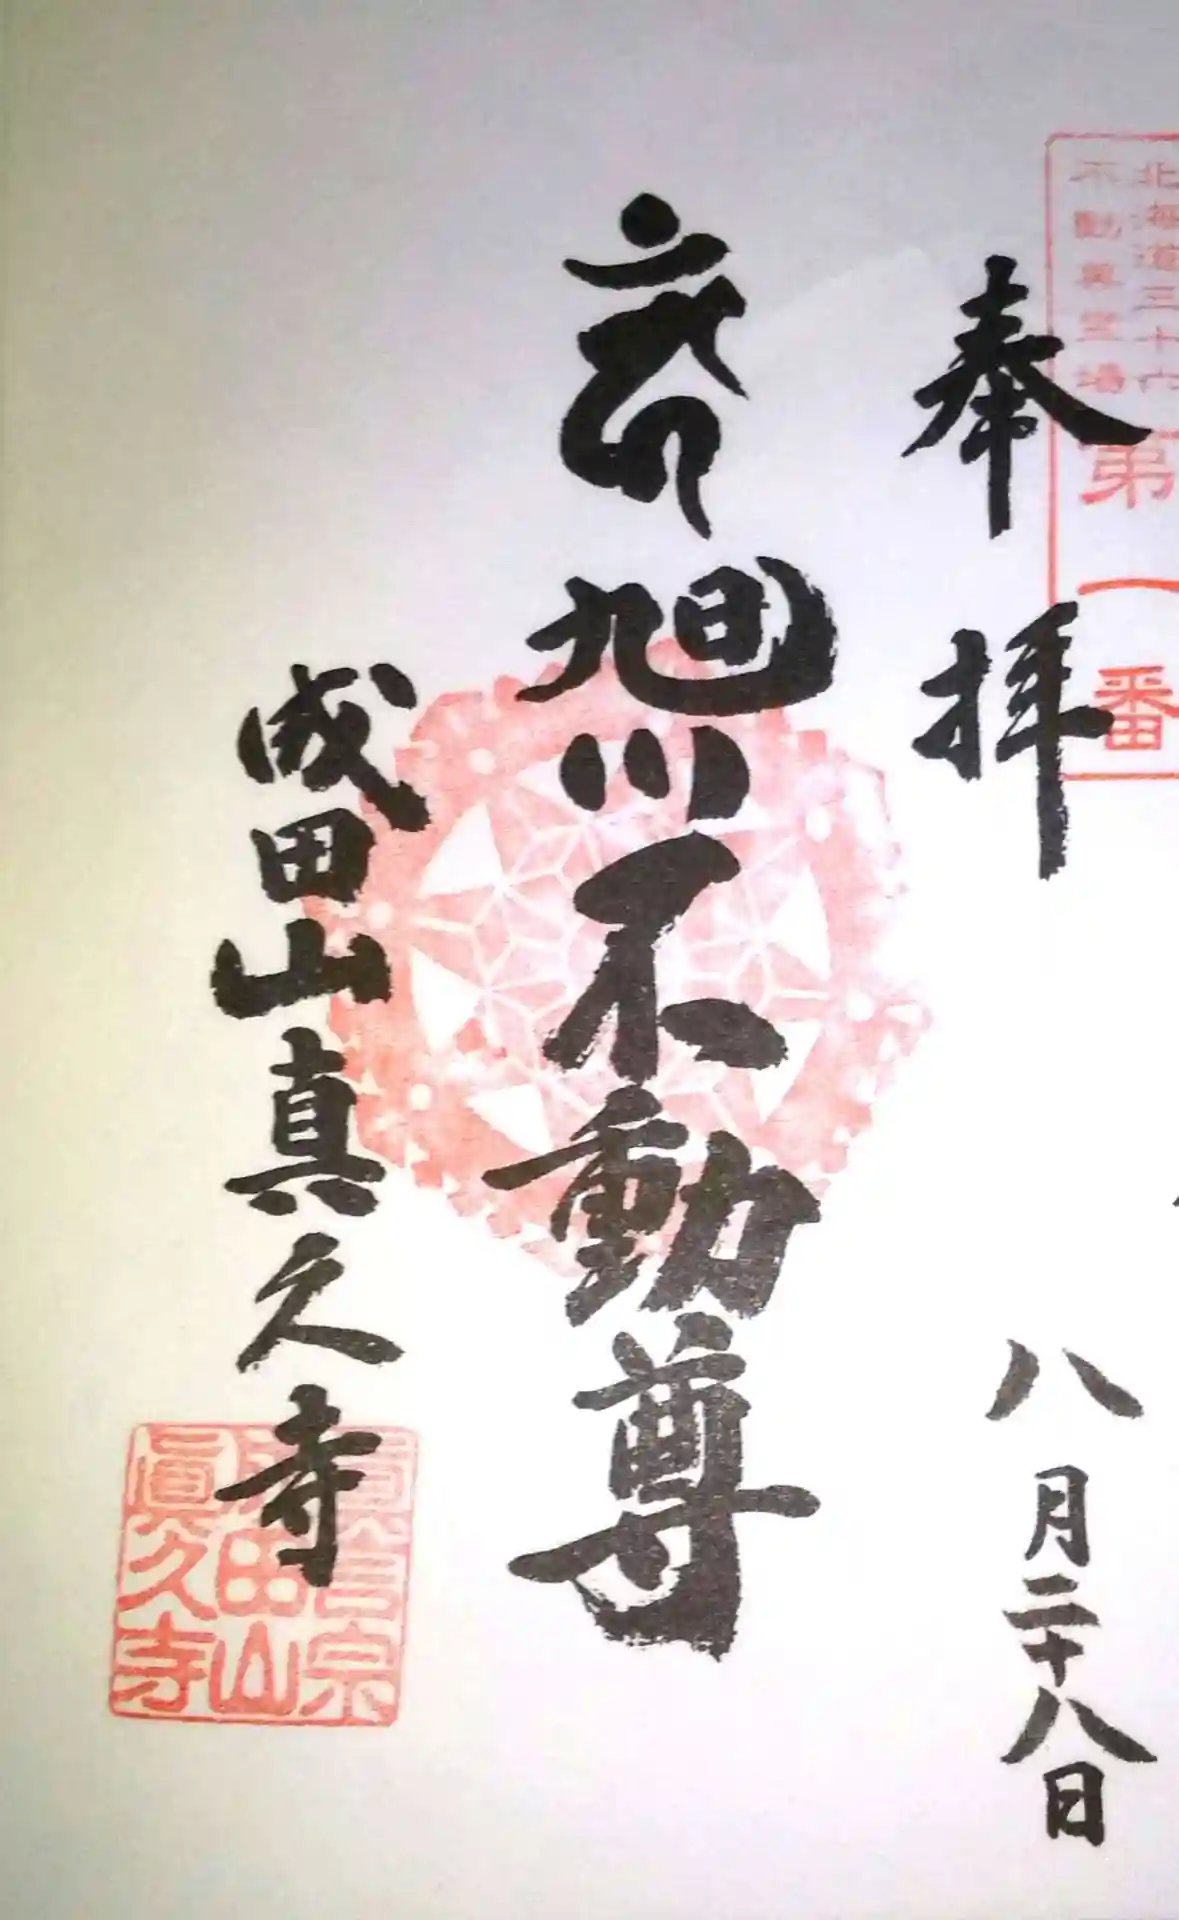 北海道三十六
不動尊霊場
第一番
奉拝
八月二十八日
旭川不動尊
成田山真久寺
真言宗
成田山
眞久寺